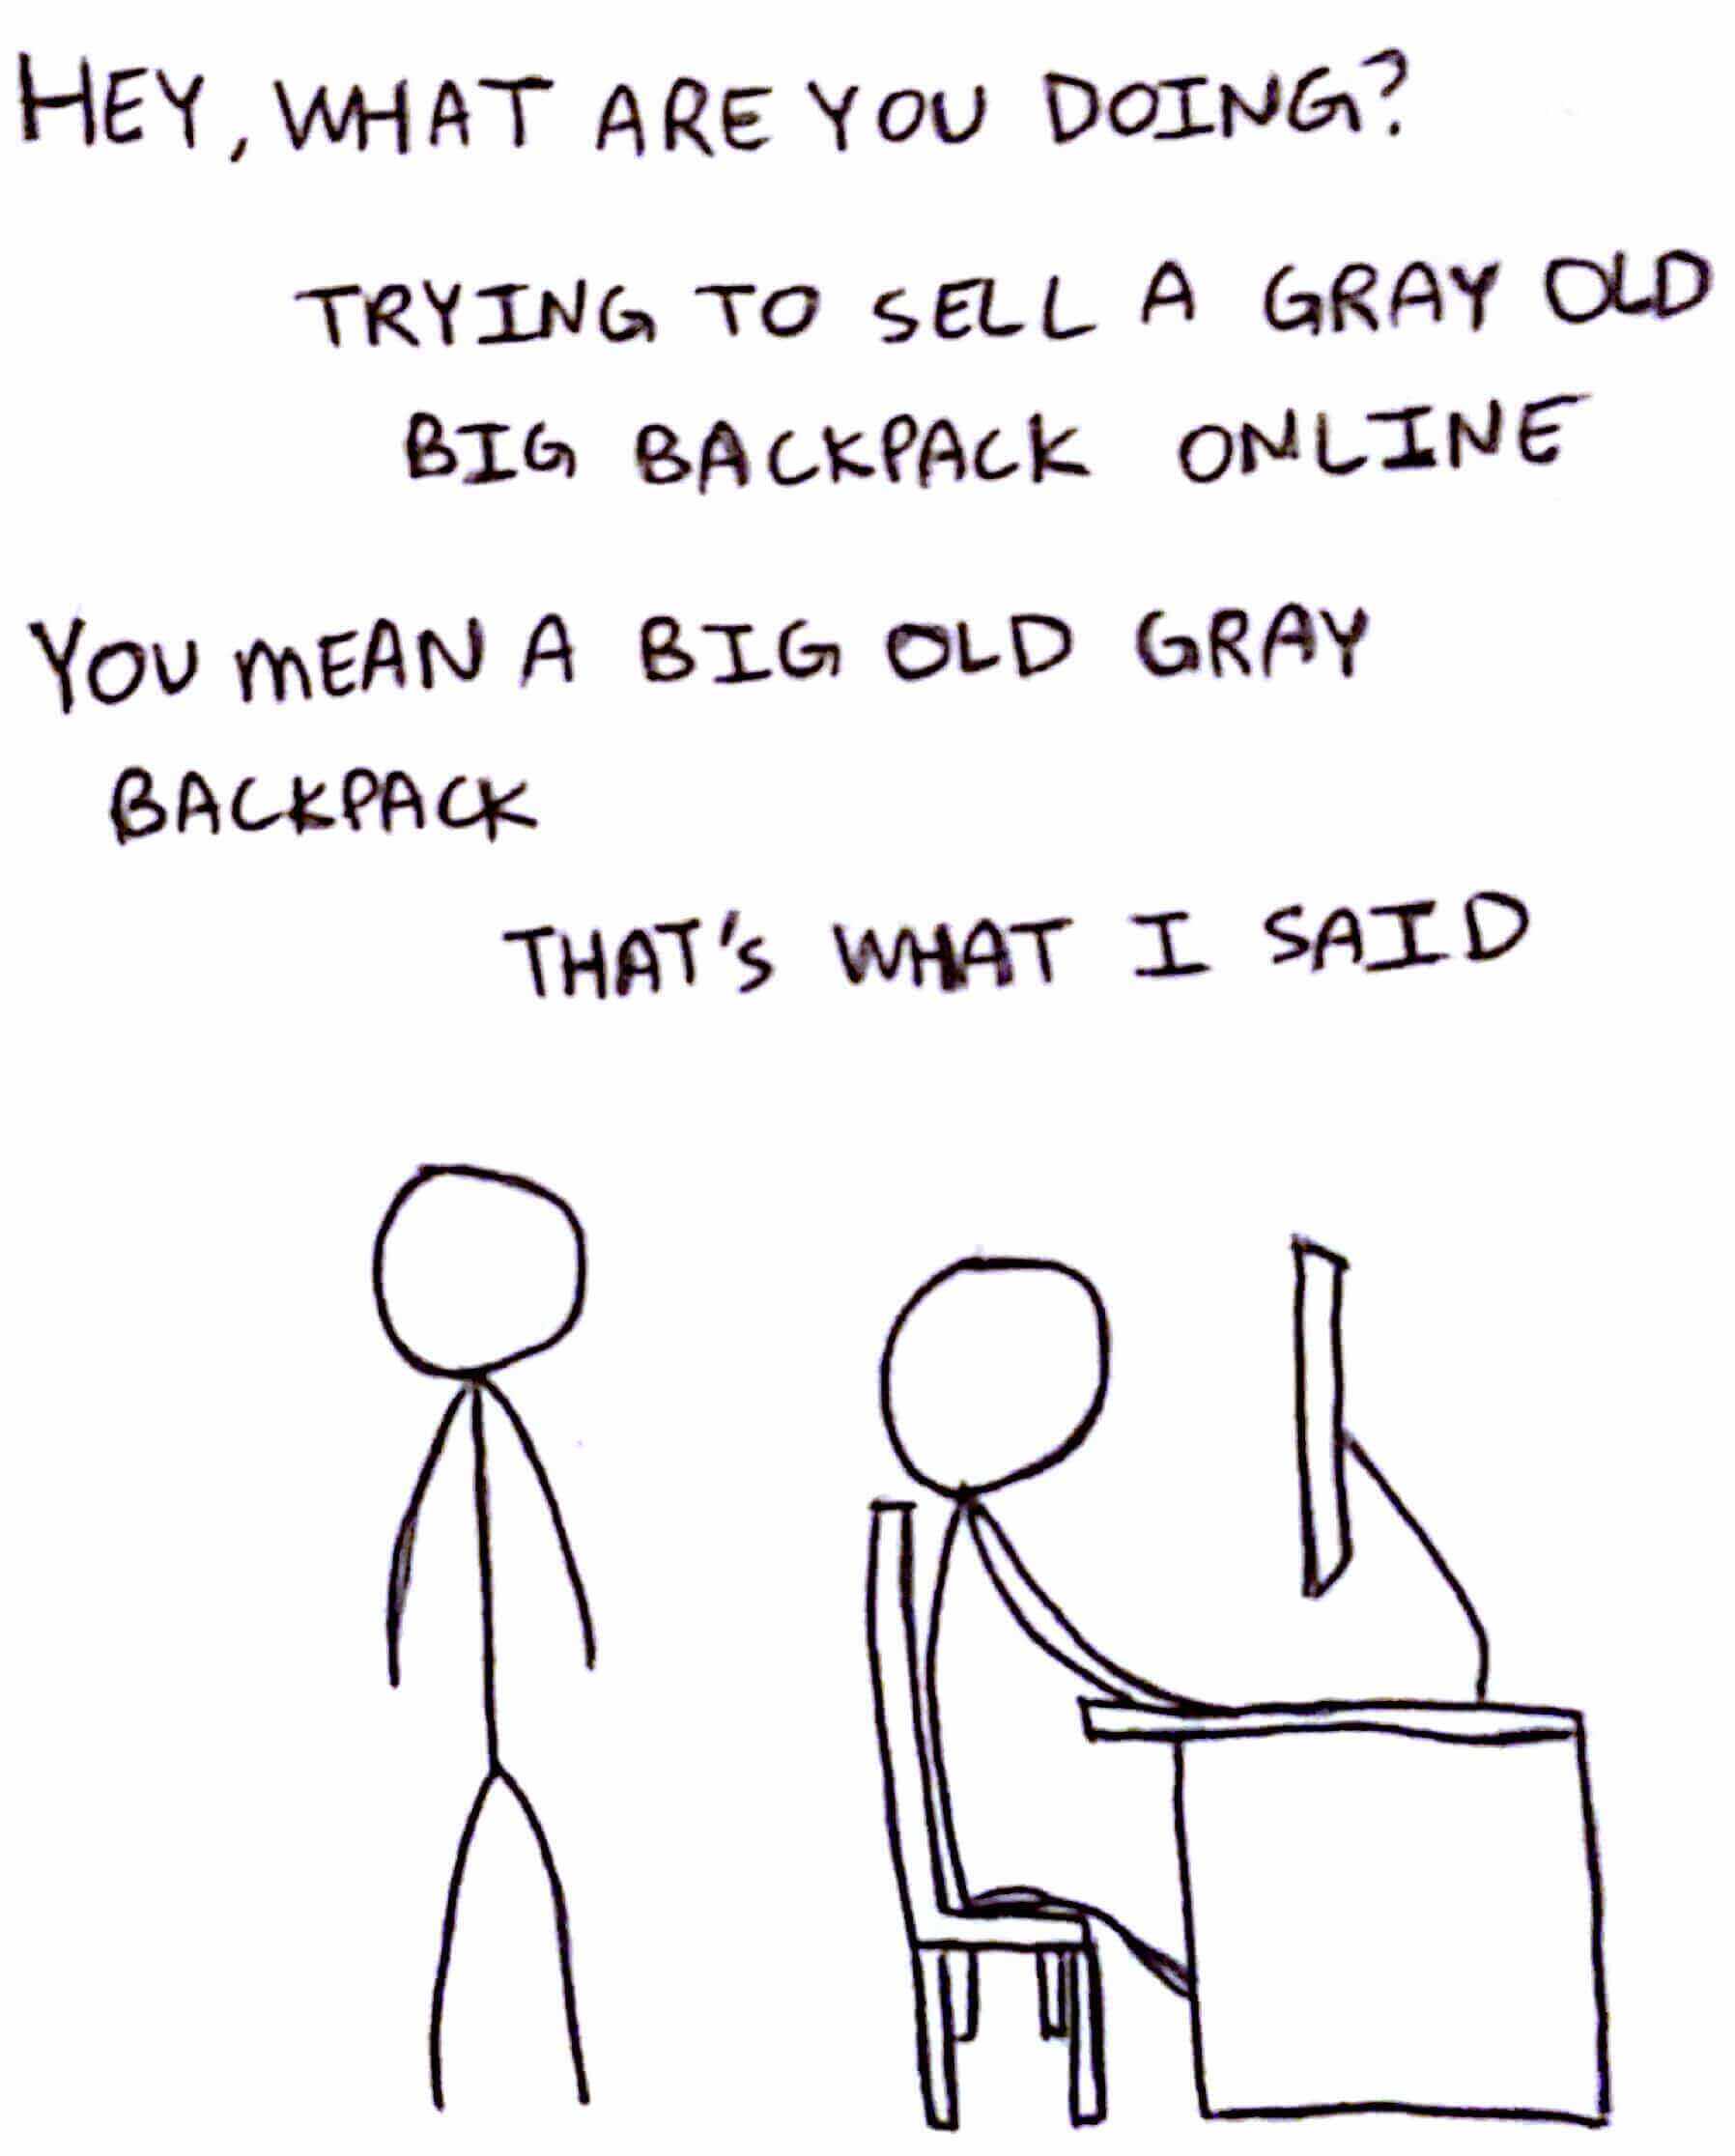 HEY, WHAT ARE YOU DOING?
TRYING TO SELL A GRAY OLD
BIG BACKPACK ONLINE
YOU MEAN A BIG OLD GRAY
BACKPACK
THAT'S WHAT I SAID